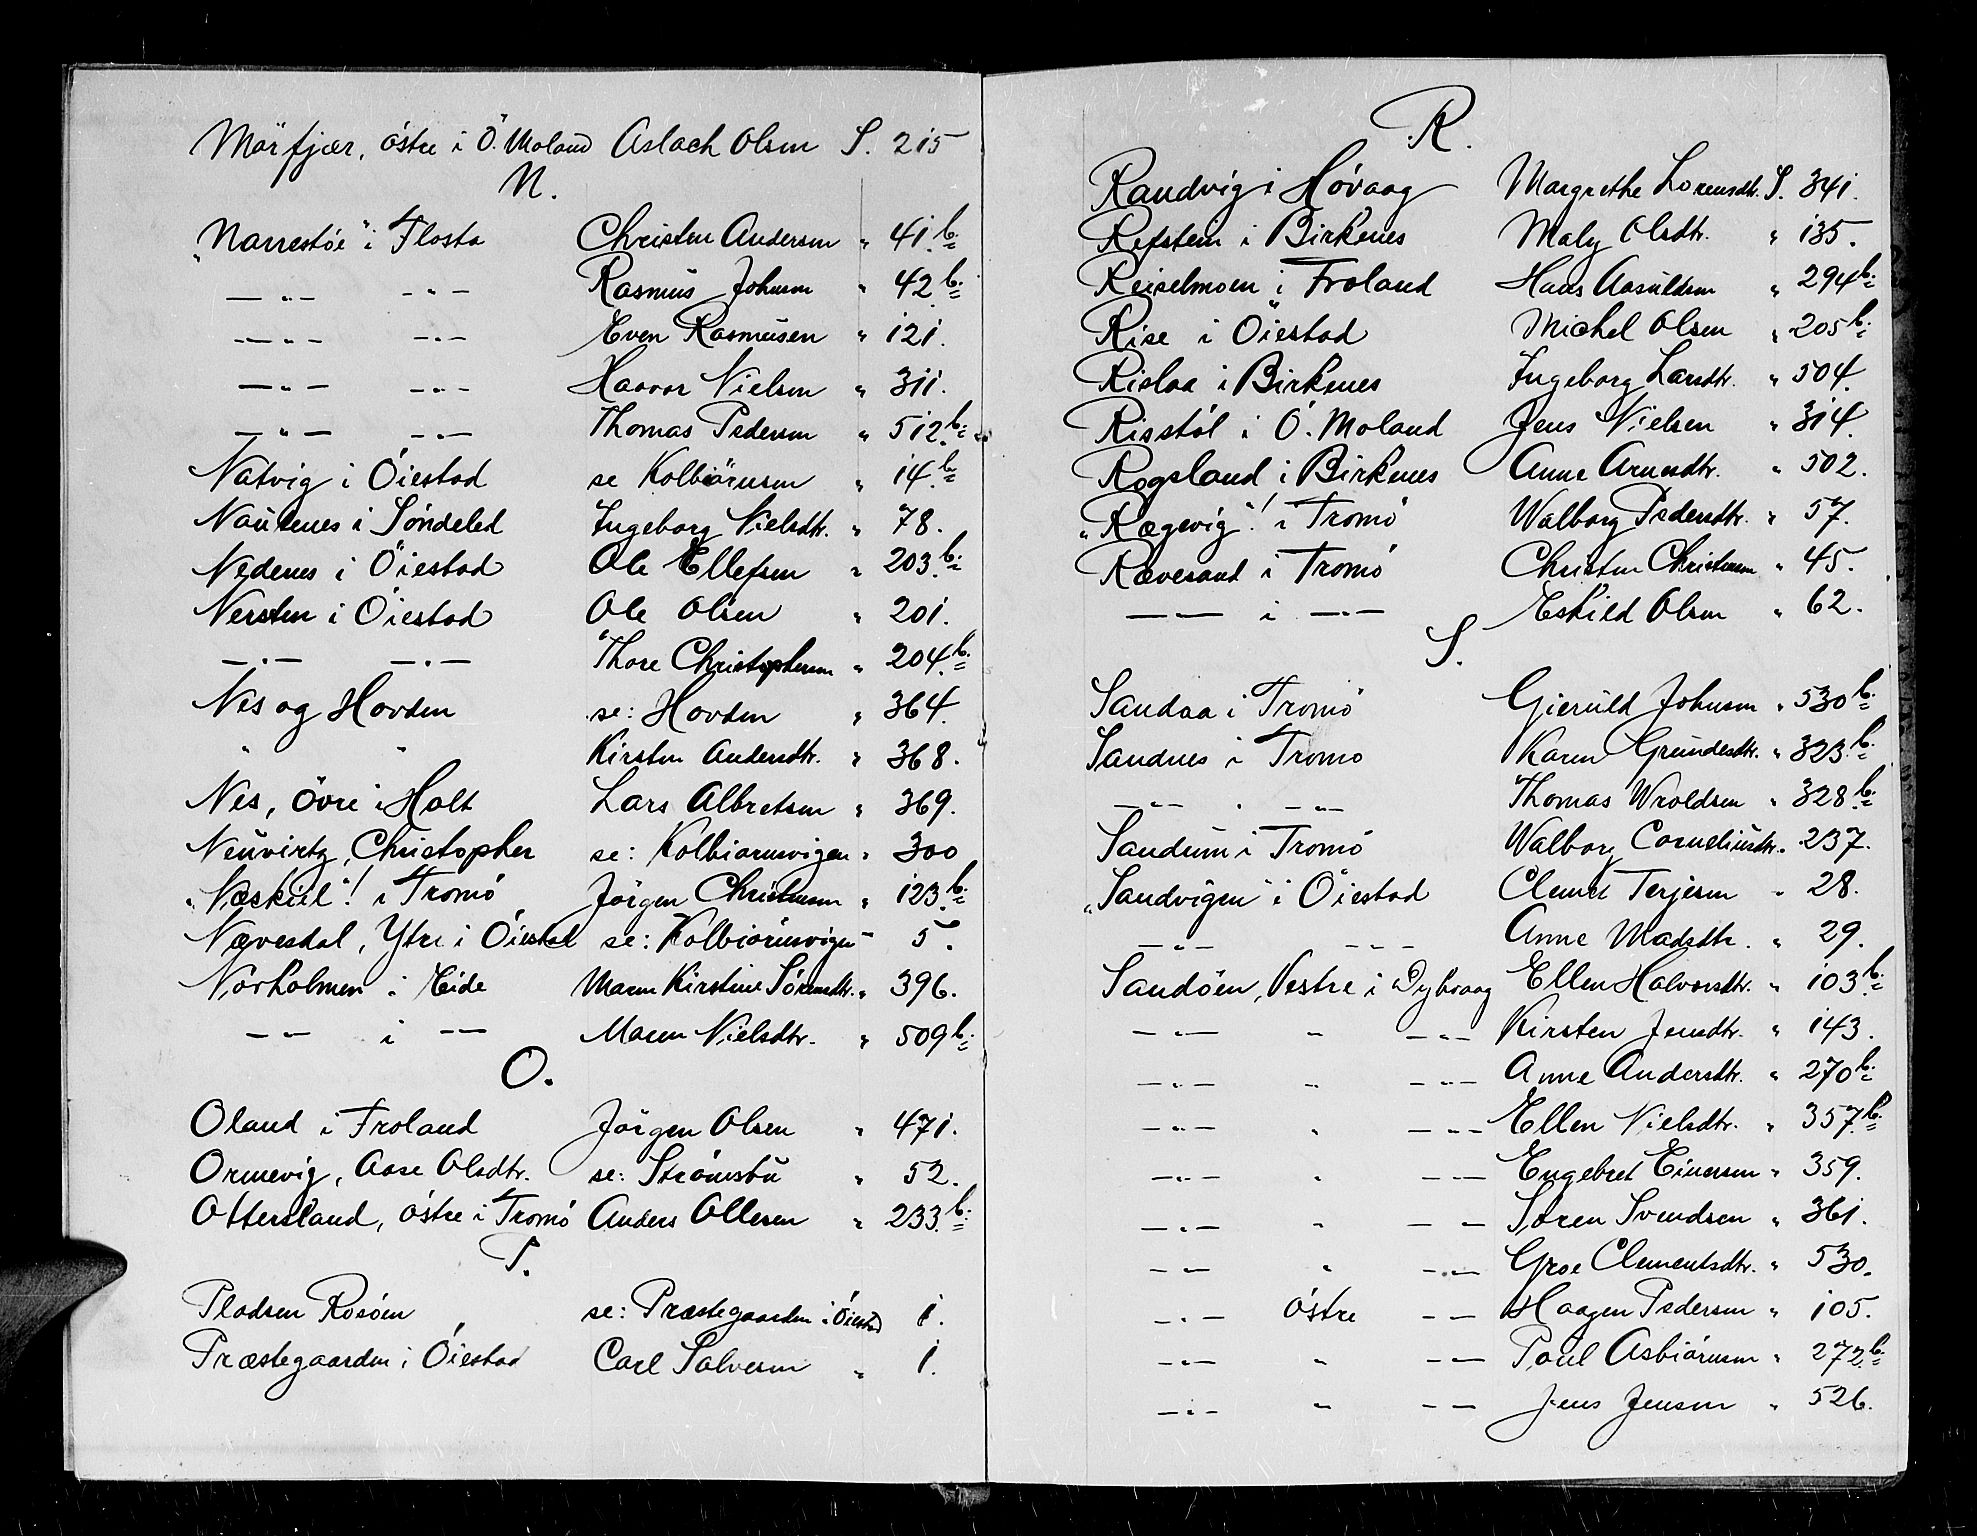 Mörfjær, östre i Ö. Moland Aslach Olsen S. 215
N.
"Narrestöe" i Flosta Christen Andersen " 41.b.
— " — - " - Rasmus Johnsen " 42.b.
— " — - " - Even Rasmusen " 121.
— " — - " - Haavor Nielsen " 311.
— " — - " - Thomas Pedersen " 512.b.
Natvig i Öiestad se Kolbiörnsen " 14.b.
Nautenes i Söndeled Ingeborg Nielsdtr. " 78.
Nedenes i Öiestad Ole Ellefsen " 203.b.
Nersten i Öiestad Ole Olsen " 201.
— " — — " — Thore Christophersen " 204.b.
Nes og Hovden se: Hovden " 364.
" " Kirsten Andersdtr. " 368.
Nes, Övre i Holt Lars Albretsen " 369.
Neuvirtz, Christopher se: Kolbiornsvigen " 300
"Næskiil"! i Tromö Jörgen Christensen " 123.b.
Nævesdal, Ytre i Öiestad se: Kolbiörnsvigen " 5.
Nörholmen i Eide Maren Kirstine Sörensdtr. " 396.
— " — i — " — Maren Nielsdtr. " 509.b.
O.
Oland i Froland Jörgen Olsen " 471.
Ormevig, Aase Olsdtr. se: Strömsbu " 52.
Ottersland, östre i Tromö Anders Ollesen " 233.b.
P.
Pladsen Rosöen se: Præstegaarden i Öiestad 1.
Præstegaarden i Öiestad Carl Salvesen " 1.
R.
Randvig i Hövaag Margrethe Lorensdtr. S. 341.
Refstein i Birkenes Maly Olsdtr. " 135.
Reiselmoen i Froland Hans Aasuldsen " 294.b.
Rise i Öiestad Michel Olsen " 205.b.
Rislaa i Birkenes Ingeborg Larsdtr. " 504.
Risstöl i Ö. Moland Jens Nielsen " 314.
Rogsland i Birkenes Anne Arnesdtr. " 502.
"Rægevig"! i Tromö Walborg Pedersdtr. " 57.
Rævesand i Tromö Christen Christensen " 45.
— " — i — " — Eskild Olsen " 62.
S.
Sandaa i Tromö Gieruld Johnsen " 530.b.
Sandnes i Tromö Karen Grundesdtr. " 323.b.
— " — " — " — Thomas Wroldsen " 328.b.
Sandum i Tromö Walborg Corneliusdtr. " 237.
"Sandvigen" i Öiestad Clemet Terjesen " 28.
— " — — " — Anne Madsdtr. " 29.
Sandöen, Vestre i Dybvaag Ellen Halvorsdtr. " 103.b.
— " — " — " — Kirsten Jensdtr. " 143.
— " — " — " — Anne Andersdtr. " 270.b.
— " — " — " — Ellen Nielsdtr. " 357.b.
— " — " — " — Engebret Einersen " 359.
— " — " — " — Sören Svendsen " 361.
— " — " — " — Groe Clementsdtr. " 530.
— " — östre — " — Haagen Pedersen " 105.
— " — " — " — Poul Asbiörnsen " 272.b.
— " — " — " — Jens Jensen " 526.